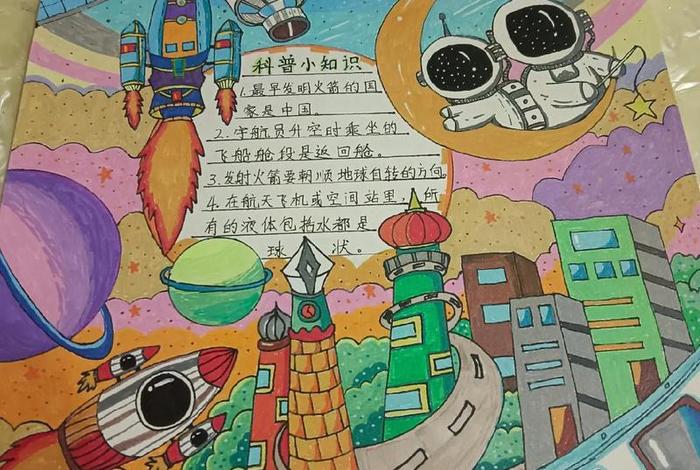 科普小知识
1.最早发明火箭的国
家是中国。
2.宇航员升空时乘坐的
飞船舱段是返回舱。
3.发射火箭要朝顺地球自转的方向。
4.在航天飞机或空间站里,所
有的液体包括水都是
球 状。